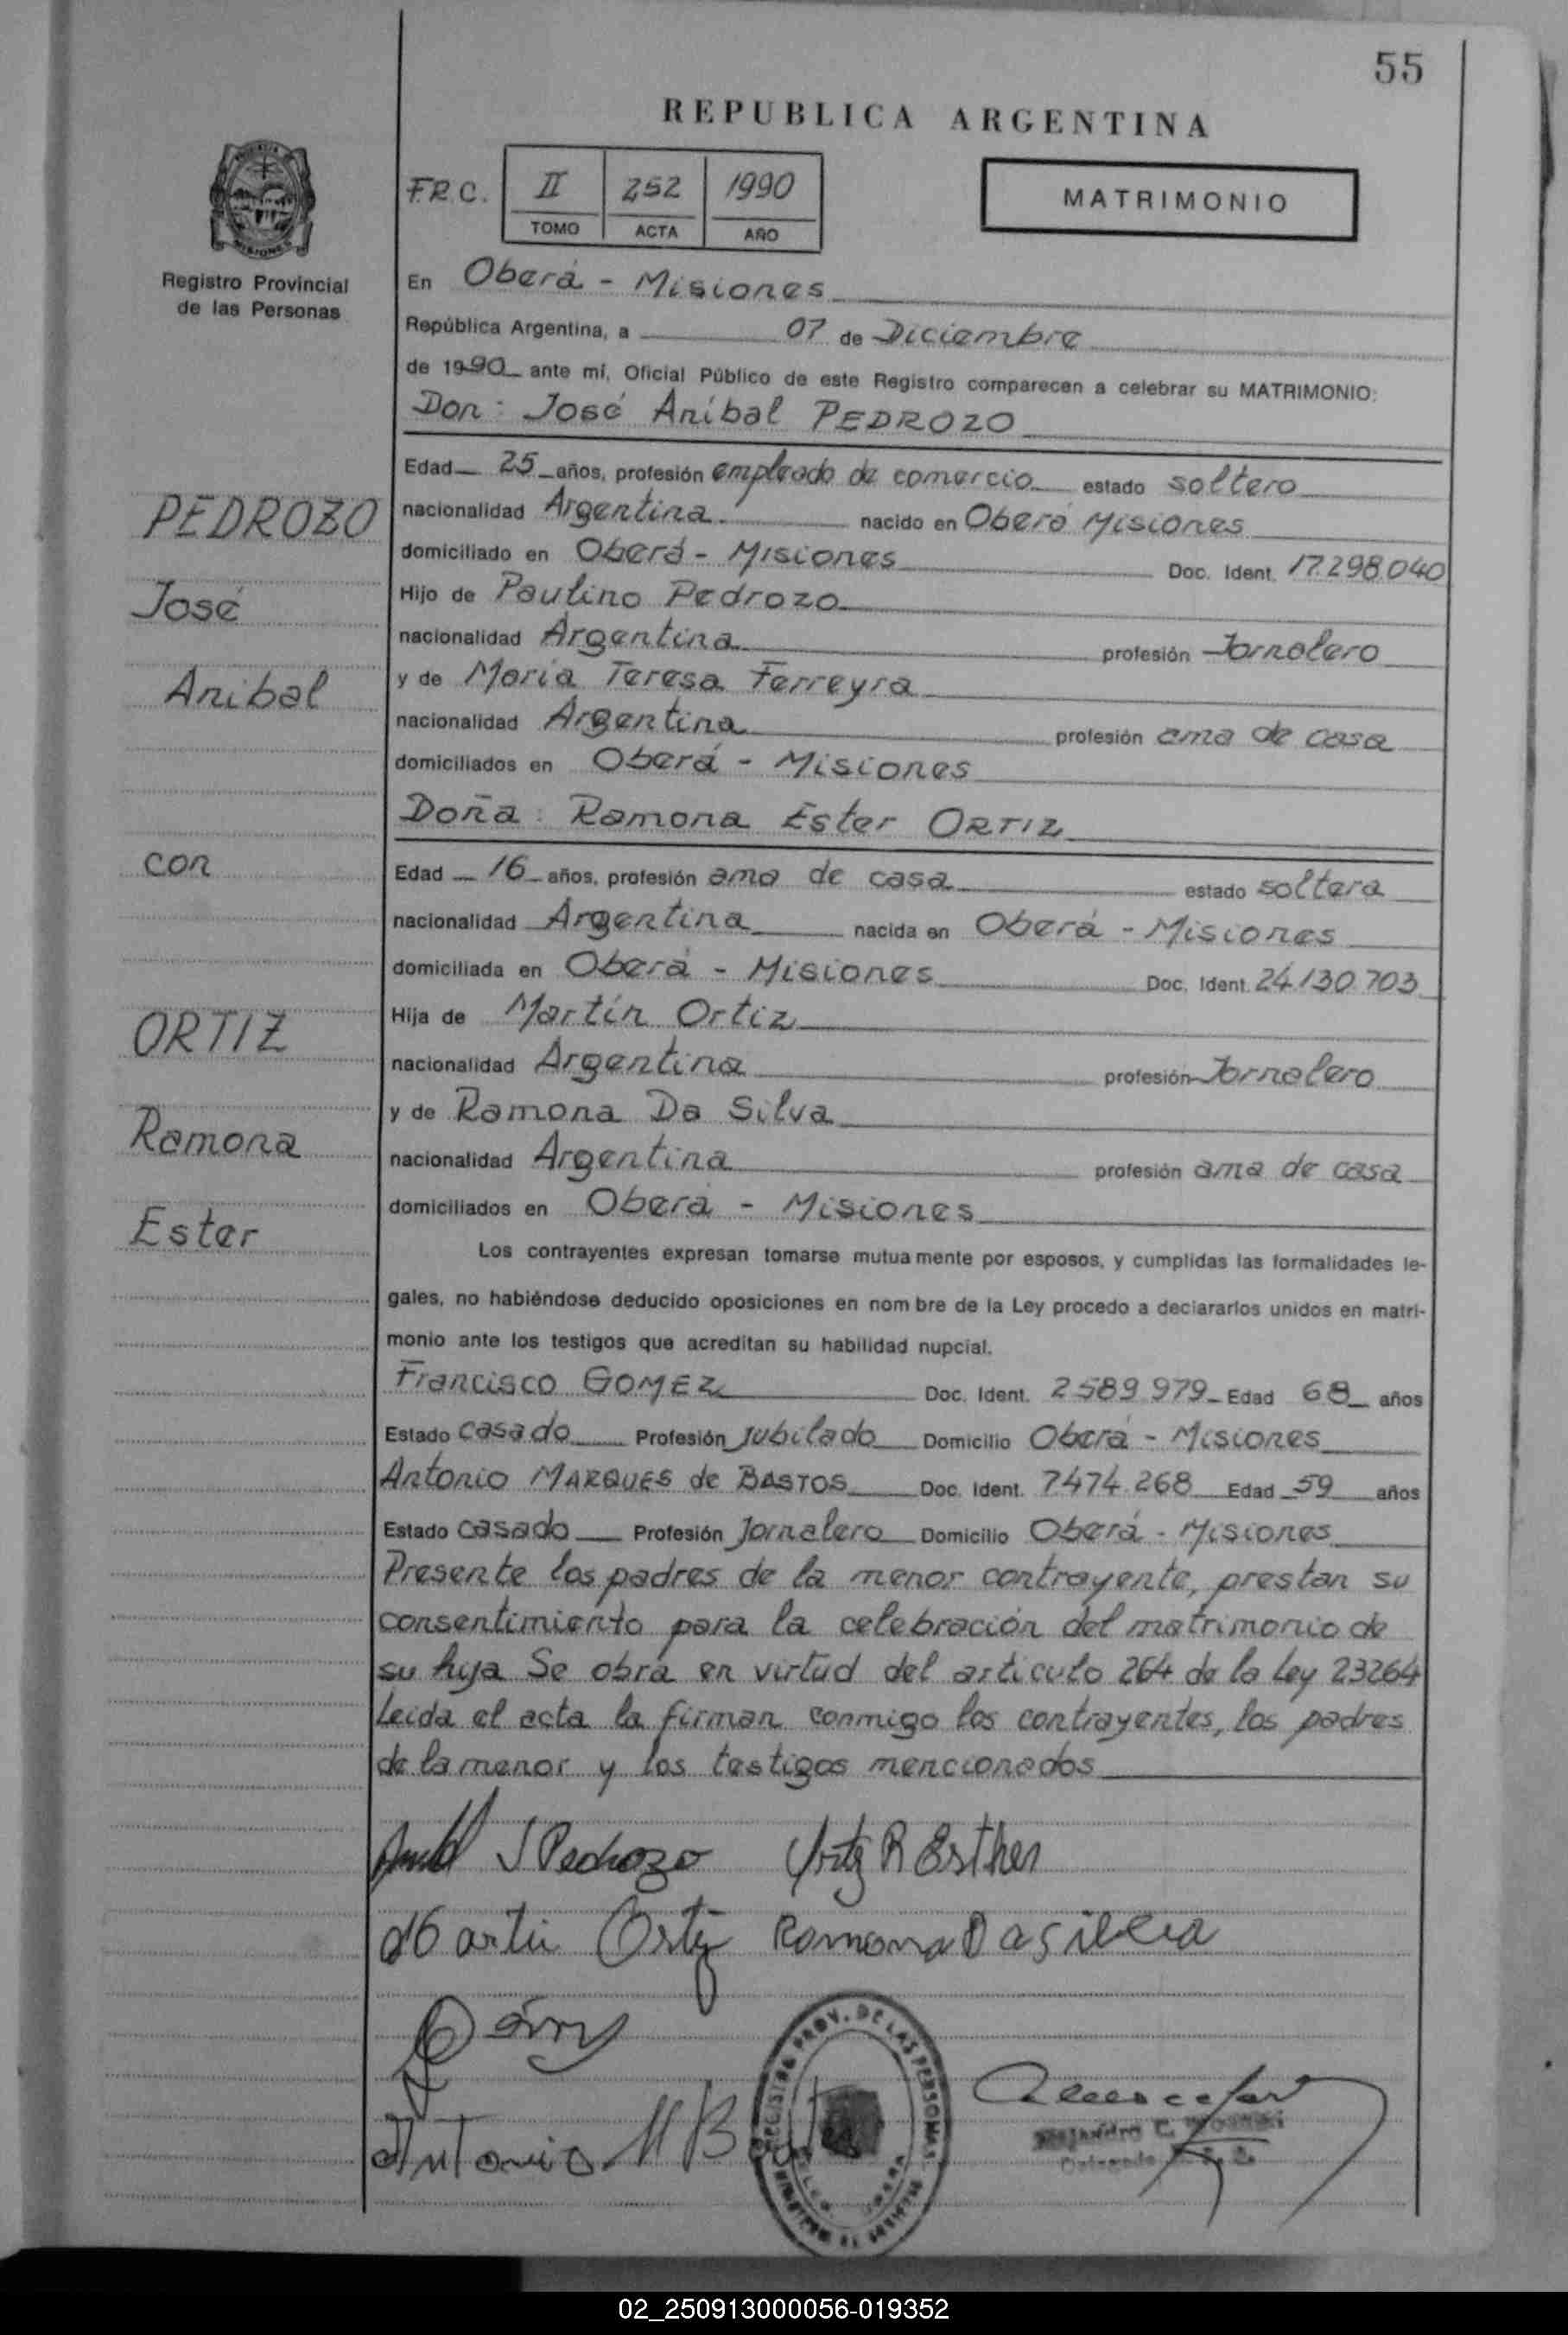 55
REPUBLICA ARGENTINA
F.R.C. II 252 1990
TOMO ACTA AÑO
MATRIMONIO
Registro Provincial
de las Personas
En Oberá - Misiones
República Argentina, a 07 de Diciembre
de 1990 ante mí, Oficial Público de este Registro comparecen a celebrar su MATRIMONIO:
Don: José Aníbal PEDROZO
Edad 25 años, profesión empleado de comercio estado soltero
PEDROZO
nacionalidad Argentina nacido en Oberá Misiones
domiciliado en Oberá - Misiones Doc. Ident. 17.298.040
José
Hijo de Paulino Pedrozo
nacionalidad Argentina profesión Jornalero
Anibal
y de María Teresa Ferreyra
nacionalidad Argentina profesión ama de casa
domiciliados en Oberá - Misiones
Doña: Ramona Ester ORTIZ
con
Edad 16 años, profesión ama de casa estado soltera
nacionalidad Argentina nacida en Oberá - Misiones
domiciliada en Oberá - Misiones Doc. Ident. 24.130.703
ORTIZ
Hija de Martín Ortiz
nacionalidad Argentina profesión Jornalero
Ramona
y de Ramona Da Silva
nacionalidad Argentina profesión ama de casa
Ester
domiciliados en Oberá - Misiones
Los contrayentes expresan tomarse mutuamente por esposos, y cumplidas las formalidades le-
gales, no habiéndose deducido oposiciones en nombre de la Ley procedo a declararlos unidos en matri-
monio ante los testigos que acreditan su habilidad nupcial.
Francisco GOMEZ Doc. Ident. 2589.979 Edad 68 años
Estado casado Profesión Jubilado Domicilio Oberá - Misiones
Antonio MARQUES de BASTOS Doc. Ident. 7474.268 Edad 59 años
Estado casado Profesión Jornalero Domicilio Oberá - Misiones
Presente los padres de la menor contrayente, prestan su
consentimiento para la celebración del matrimonio de
su hija Se obra en virtud del artículo 264 de la Ley 23264
Leida el acta la firman conmigo los contrayentes, los padres
de la menor y los testigos mencionados
J Pedrozo Ortiz R Esther
Martin Ortiz Ramona Dasilva
Antonio M B
REGISTRO PROV. DE LAS PERSONAS
02_250913000056-019352